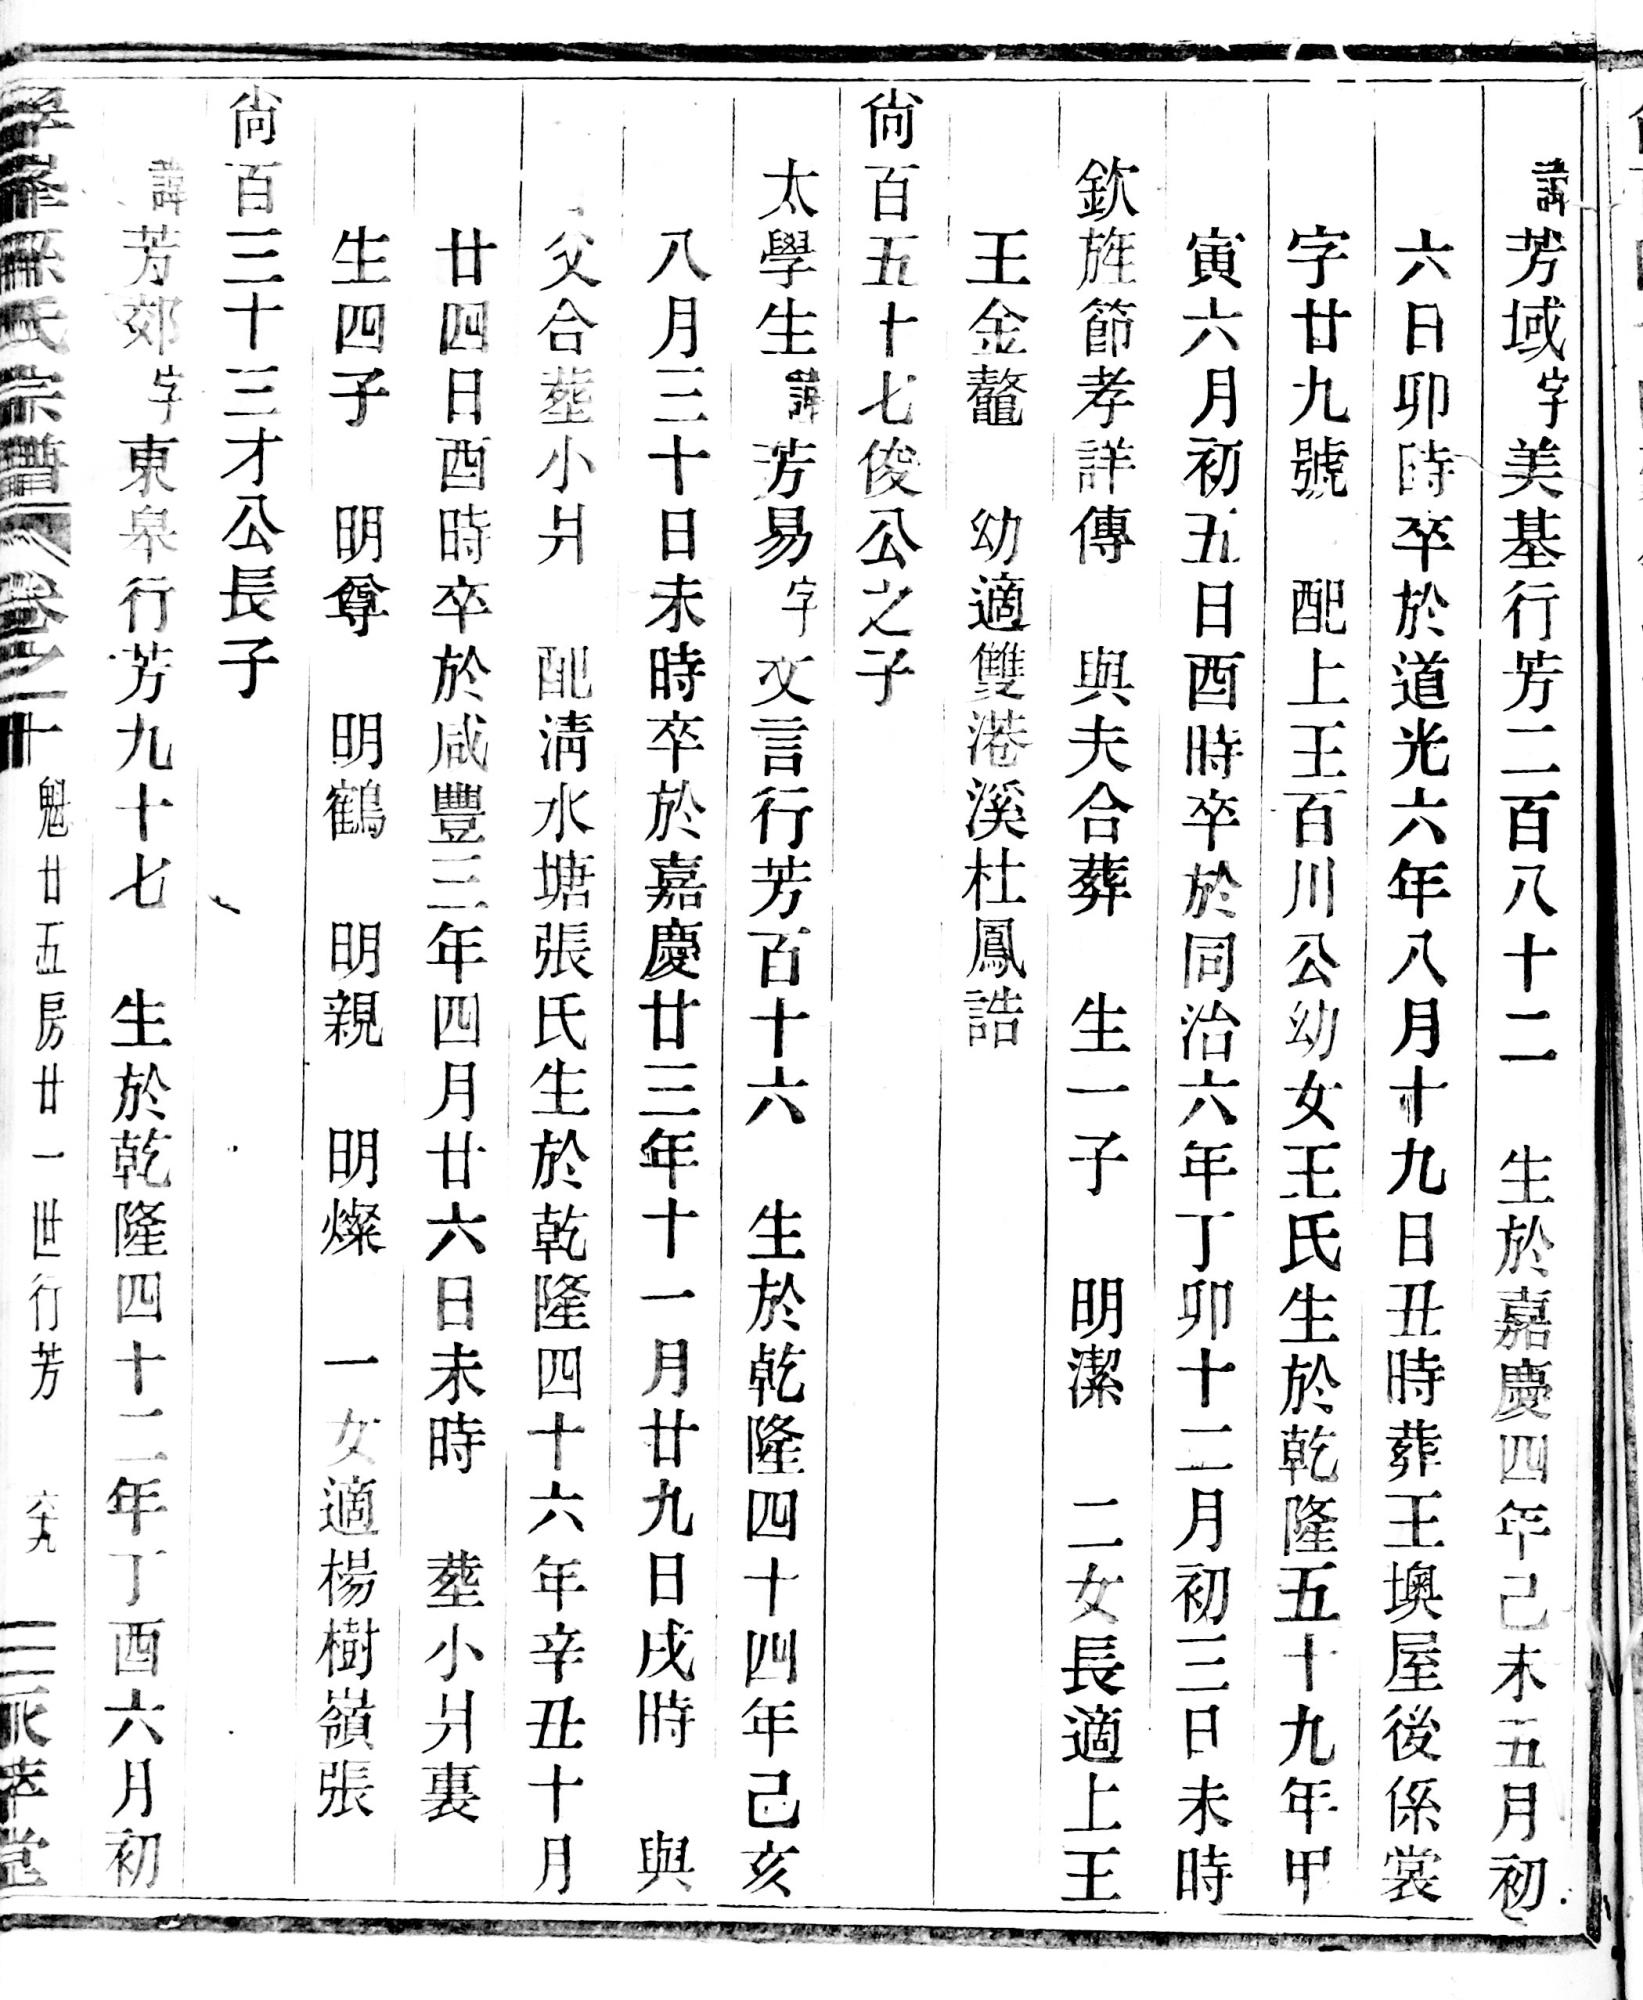 諱芳域字美基行芳二百八十二　生於嘉慶四年己未五月初
六日卯時卒於道光六年八月十九日丑時葬王墺屋後係裳
字廿九號　配上王百川公幼女王氏生於乾隆五十九年甲
寅六月初五日酉時卒於同治六年丁卯十二月初三日未時
欽旌節孝詳傳　與夫合葬　生一子　明潔　二女長適上王
王金鼇　幼適雙港溪杜鳳誥
尚百五十七俊公之子
太學生諱芳易字文言行芳百十六　生於乾隆四十四年己亥
八月三十日未時卒於嘉慶廿三年十一月廿九日戌時　與
父合塟小爿　配淸水塘張氏生於乾隆四十六年辛丑十月
廿四日酉時卒於咸豐三年四月廿六日未時　塟小爿裏
生四子　明尊　明鶴　明親　明燦　一女適楊樹嶺張
尚百三十三才公長子
諱芳郊字東皋行芳九十七　生於乾隆四十二年丁酉六月初
孫氏宗譜　卷之二十　魁廿五房廿一世行芳　六九　萃堂